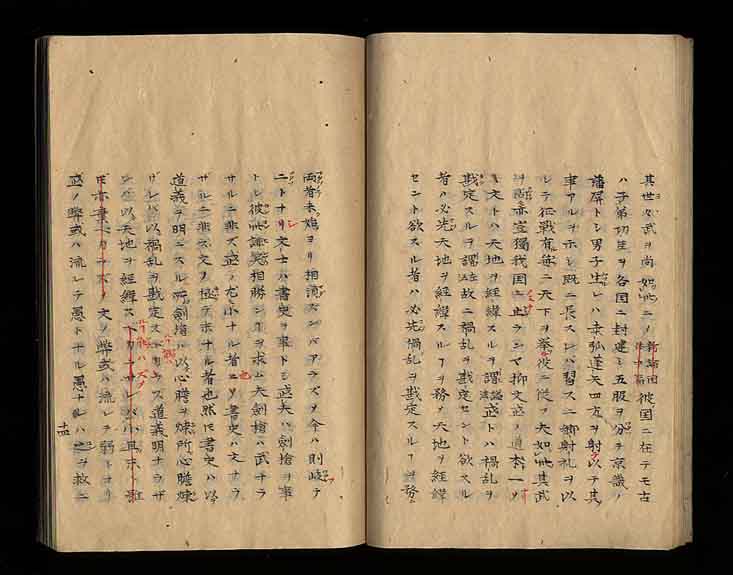 其世々武ヲ尚如此ニノ彼国ニ在テモ古
ハ子弟功臣ヲ各国ニ封建シ五服ヲ分チ京畿ノ
藩屏トシ男子生レハ桑弧蓬矢四方ヲ射以テ其
事アルヲ示シ既ニ長スレハ習スニ御射礼ヲ以
シテ征戦有毎ニ天下ヲ挙彼ニ従フ夫如此其武
ヲ尚亦豈獨我国ニ止ランヤ抑文武ノ道本一ツ
文トハ天地ヲ經緯スルヲ謂武トハ禍乱ヲ
戡定スルヲ謂故ニ禍乱ヲ戡定セント欲スル
者ハ必先天地ヲ經緯スルヲ務メ天地ヲ經緯
セント欲スル者ハ必先禍乱ヲ戡定スルヲ務
両者未嘗ヨリ相須ズンバアラズヲ今ハ則岐テ
ニトナリ文士ハ書史ヲ事トシ武夫ハ劍槍ヲ事
トシ彼此相勝ンヿヲ求ム夫劍槍ハ武ナラ
サルニ非ズ武ノ尤小ナル者ニ書史ハ文ナラ
サルニ非ス文ノ極テ末ナル者也然モ書史ハ以
道義ヲ明ニスル所劍槍ハ以心膽ヲ煉所心膽煉
ザレハ以禍乱ヲ戡定ス道義明ナラザ
以天地ヲ經緯ス
文ノ弊或ハ流レテ弱
武ノ弊或ハ流レテ愚トナル愚ナルハ之ヲ救ニ
十四